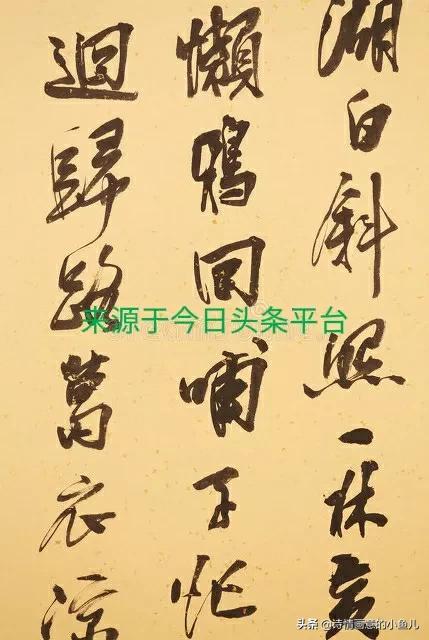 湖白斜照一林
懶鴉回哺子忙
迴歸路葛衣涼
来源于今日头条平台
头条 @诗情画意的小鱼儿